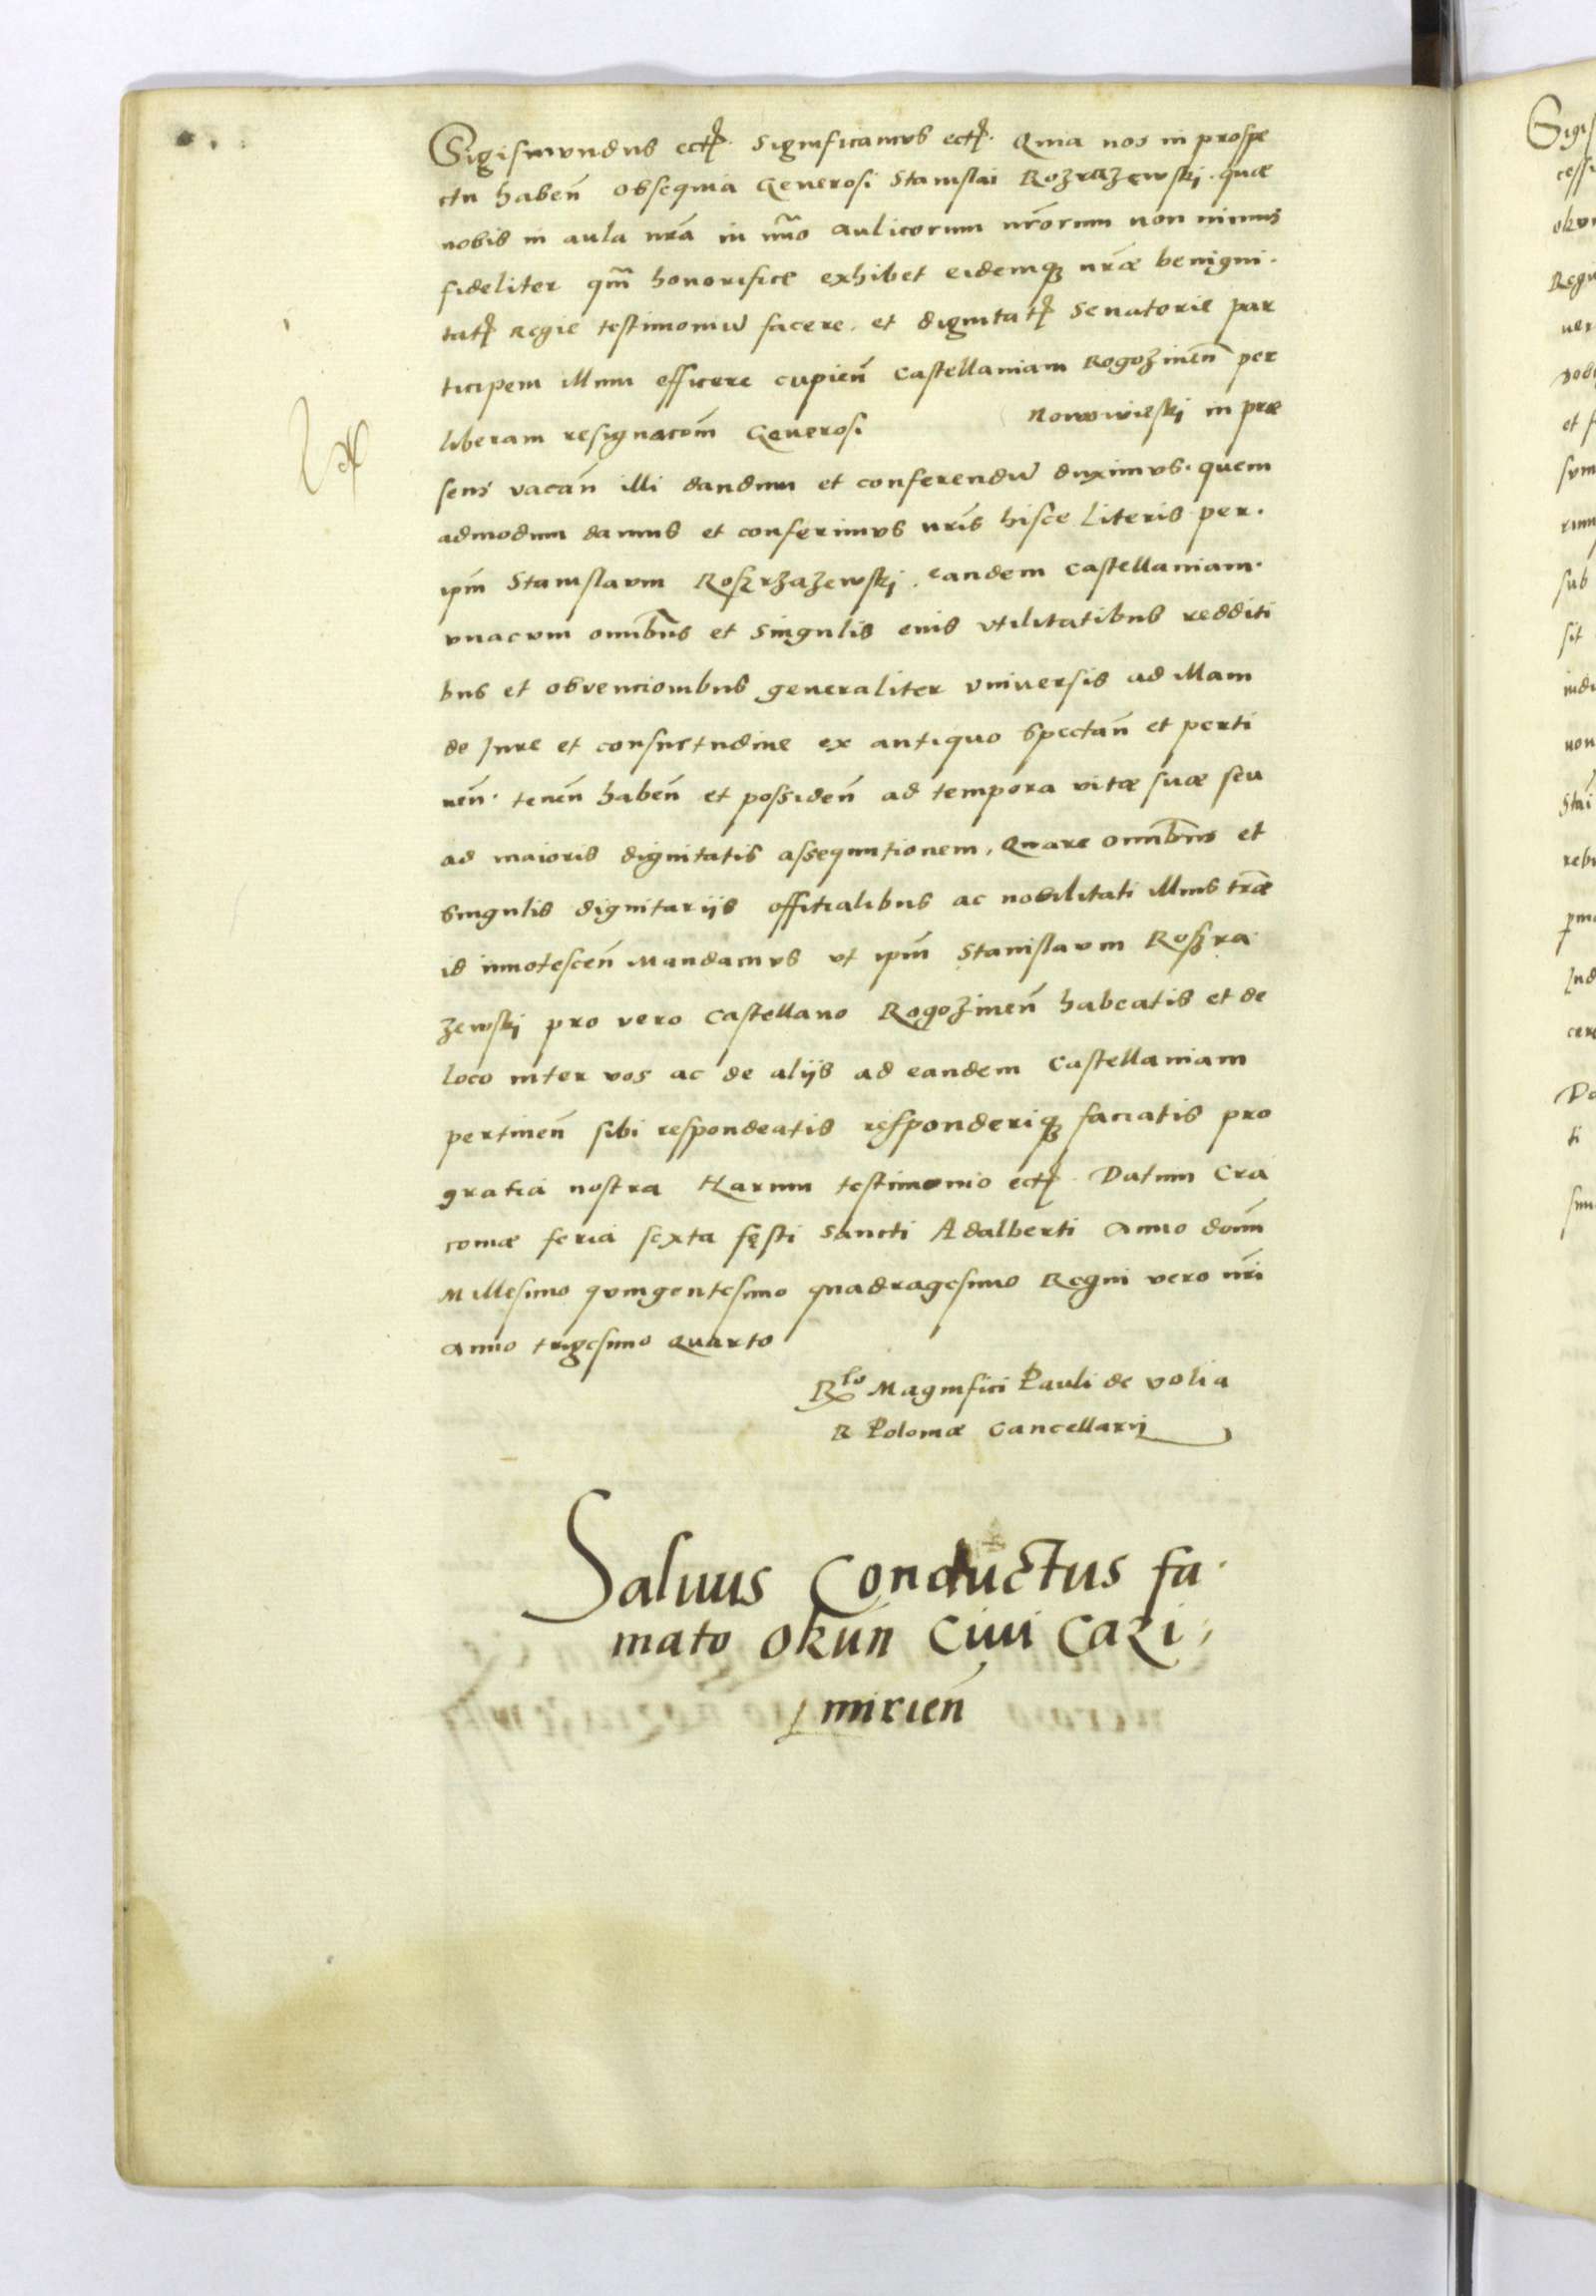 Sigismundus ect. Significamus ect. Quia nos in prospe
ctu habeñ obsequia Generosi Stanislai Rozrazewski. quæ
nobis in aula nrã in nũo aulicorum nrõrum non minus
fideliter qm̃ honorifice exhibet eidemq nrãe benigni.
tat Regie testimoniũ facere. et dignitat Senatorie par
ticipem illum efficere cupieñ Castellaniam Rogozineñ per
liberam resignacom̃ Generosi Nowowieski in præ
sens vacañ illi dandum et conferendũ duximus. quem
admodum damus et conferimus nrĩs hisce literis per.
ipm̃ Stanislaum Roszrzazewski. eandem castellaniam.
vnacum omnĩbus et singulis eius vtilitatibus redditi
bus et obvencionibus generaliter vniuersis ad illam
de Jure et consuetudine ex antiquo spectañ et perti
neñ. teneñ habeñ et possideñ ad tempora vitæ suæ seu
ad maioris dignitatis assequutionem. Quare omnĩbus et
singulis dignitariis offitialibus ac nobilitati illius trãe
id innotesceñ Mandamus vt ipm̃ Stanislaum Roszra
zewski pro vero castellano Rogozineñ habeatis et de
loco inter vos ac de aliis ad eandem Castellaniam
pertineñ sibi respondeatis responderiq faciatis pro
gratia nostra Harum testimonio ect. Datum Cra
coviæ feria sexta festi Sancti Adalberti Anno domĩ
Millesimo quingentesimo quadragesimo Regni vero nrĩ
Anno trigesimo quarto
Rlo Magnifici Pauli de volia
R Poloniæ Cancellarij
Saluus Conductus fa.
mato Okuñ Ciui Cazi,
mirieñ